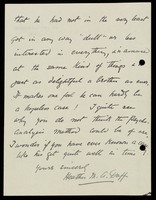 that he had not in the very least
got in any way "dull" or less
interested in everything, as amused
at the same kind of things &
just as delightful a brother as ever.
It makes one feel he can hardly be
a hopeless case! I quite see
why you do not think the psycho-
analysis method could be of use.
I wonder if you have ever known a case
like his get quite well in time?
Yours sincerely
M. A. Duff